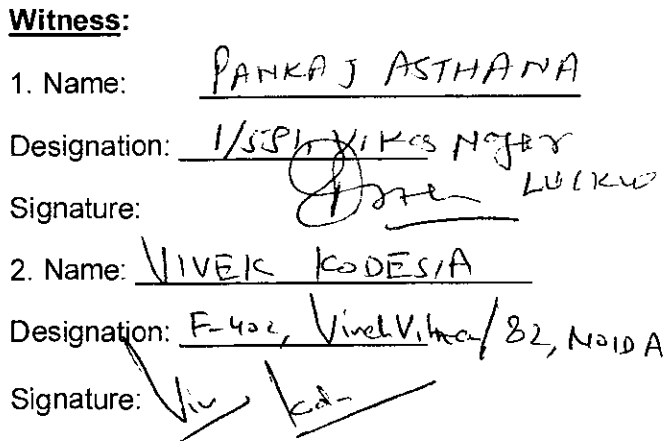 Witness:
1. Name: PANKAJ ASTHANA
Designation: 1/551, Vikas Nager
LUCKW
Signature:
2. Name: VIVEK KODESIA
Designation: F-402, Vivek Vihar/82, NOIDA
Signature: Viv Kod